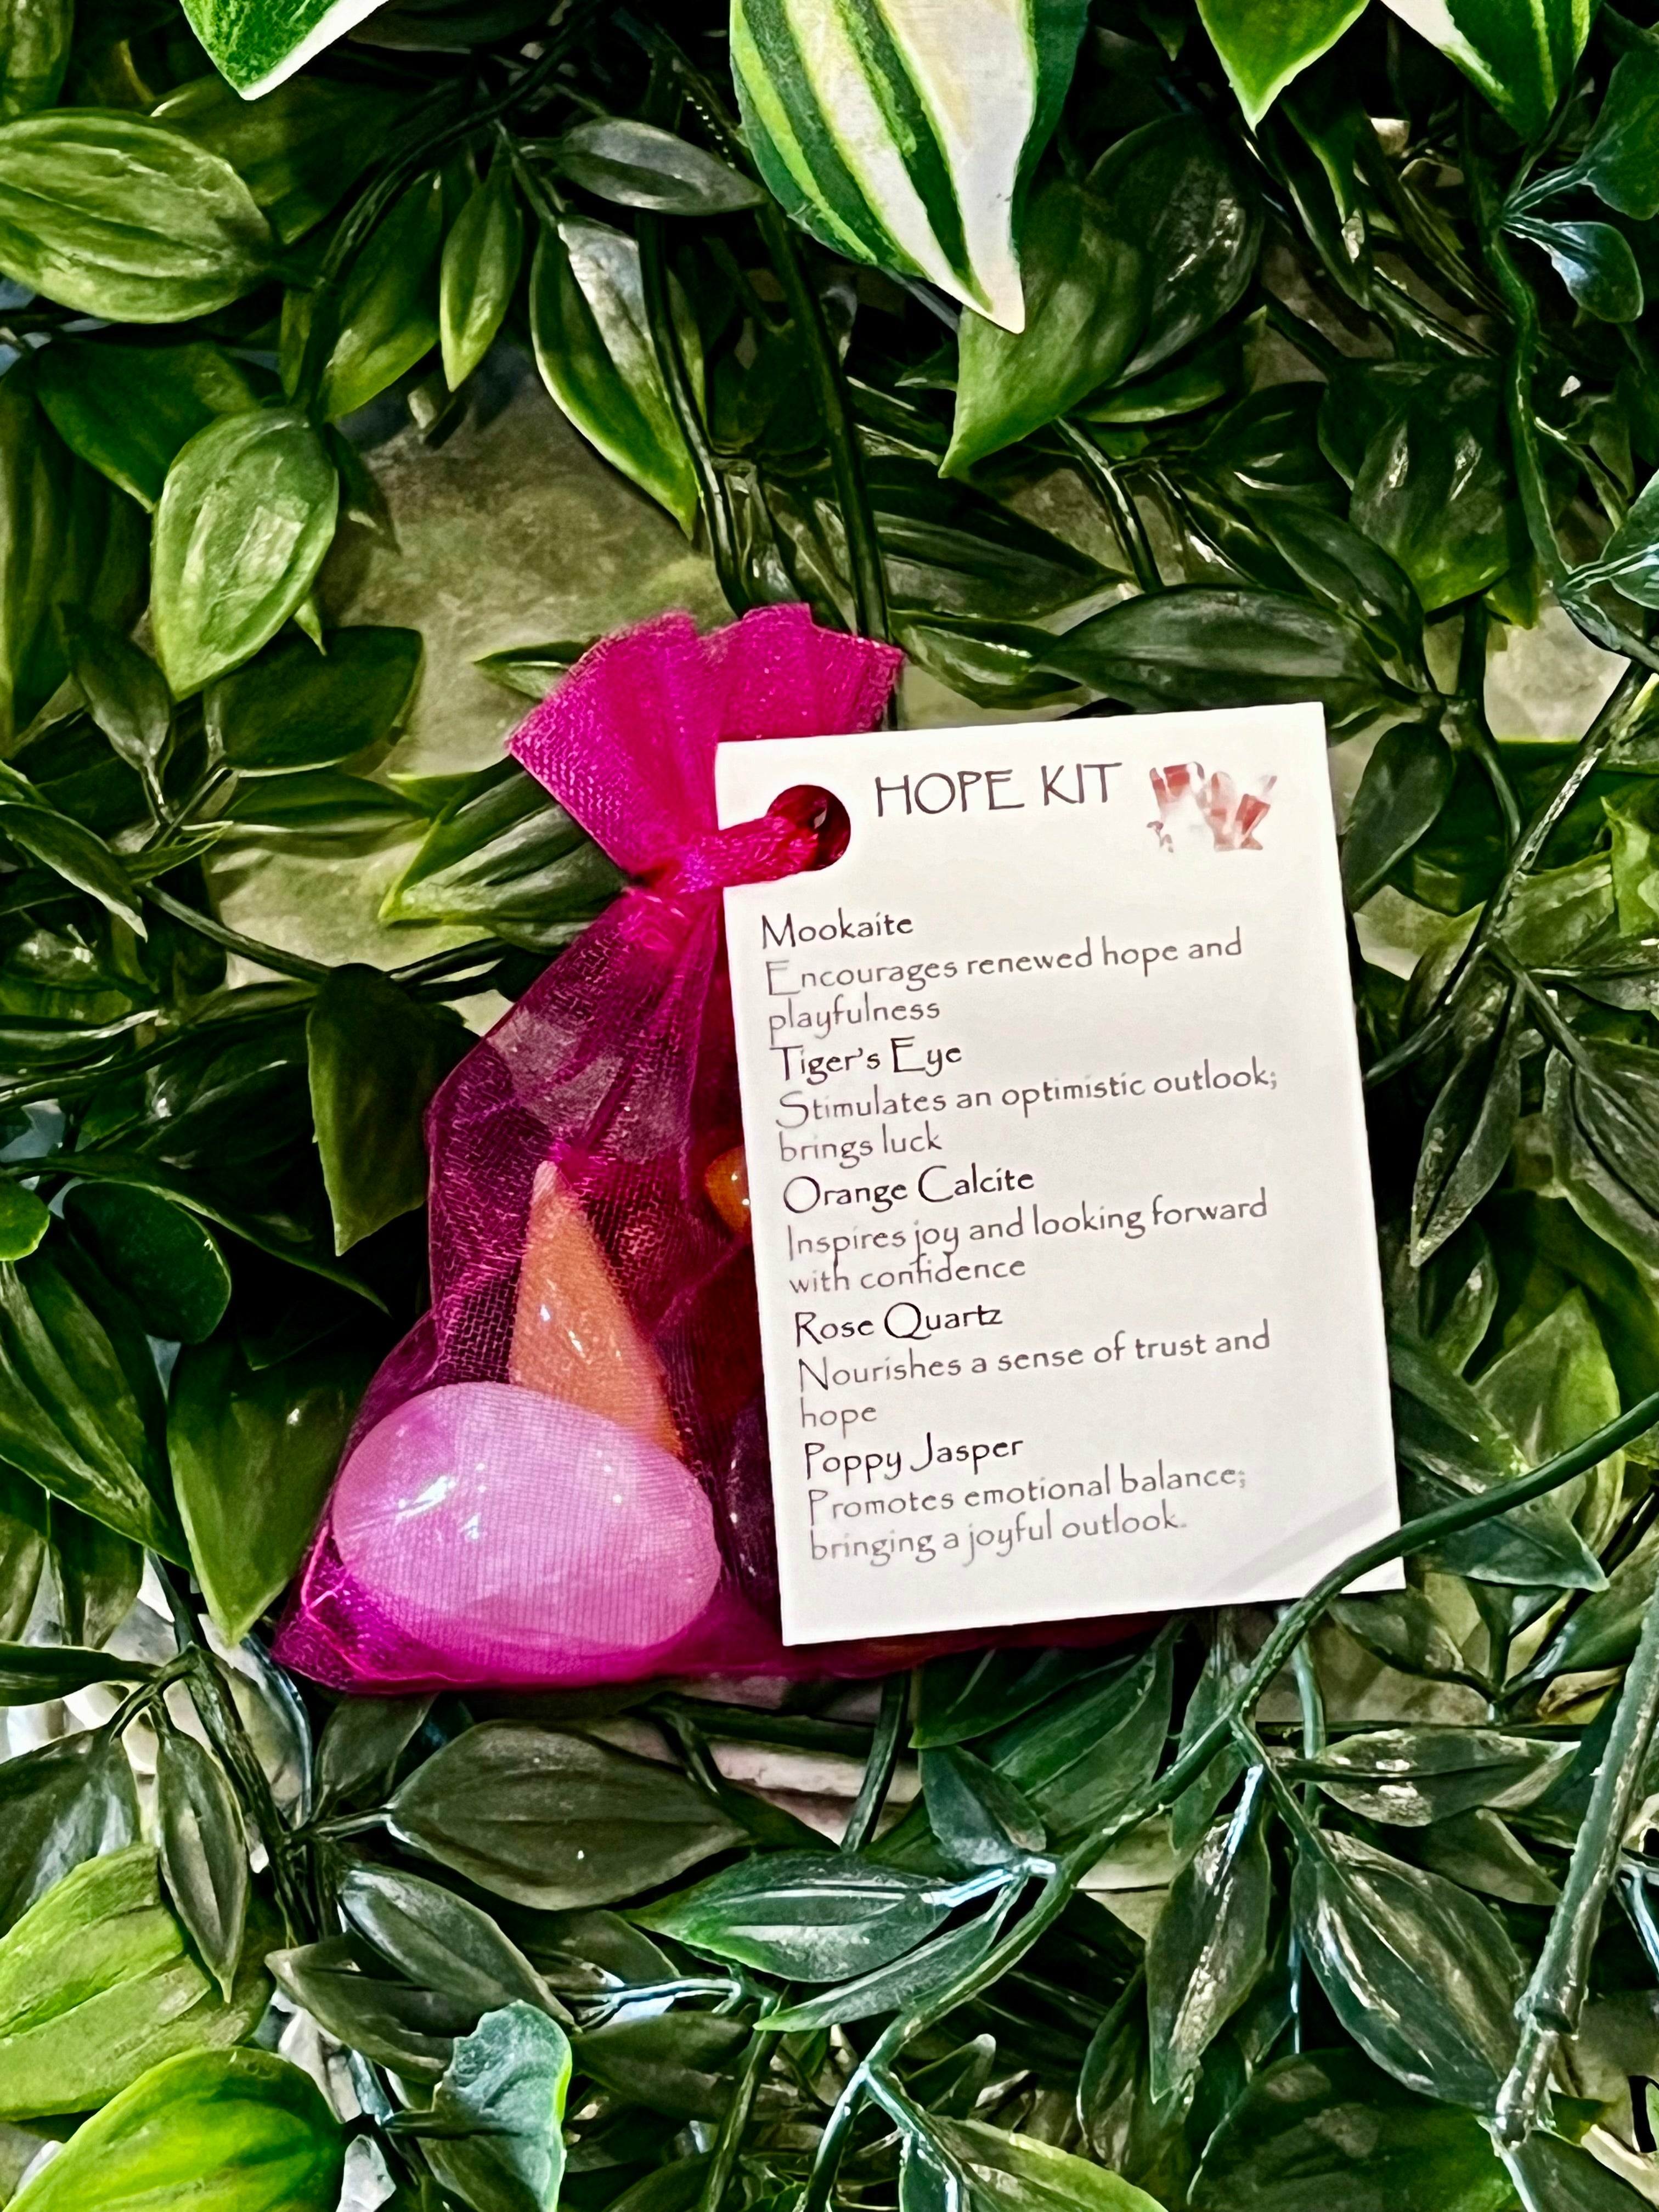 HOPE KIT
Mookaite
Encourages renewed hope and
playfulness
Tiger's Eye
Stimulates an optimistic outlook;
brings luck
Orange Calcite
Inspires joy and looking forward
with confidence
Rose Quartz
Nourishes a sense of trust and
hope
Poppy Jasper
Promotes emotional balance;
bringing a joyful outlook.